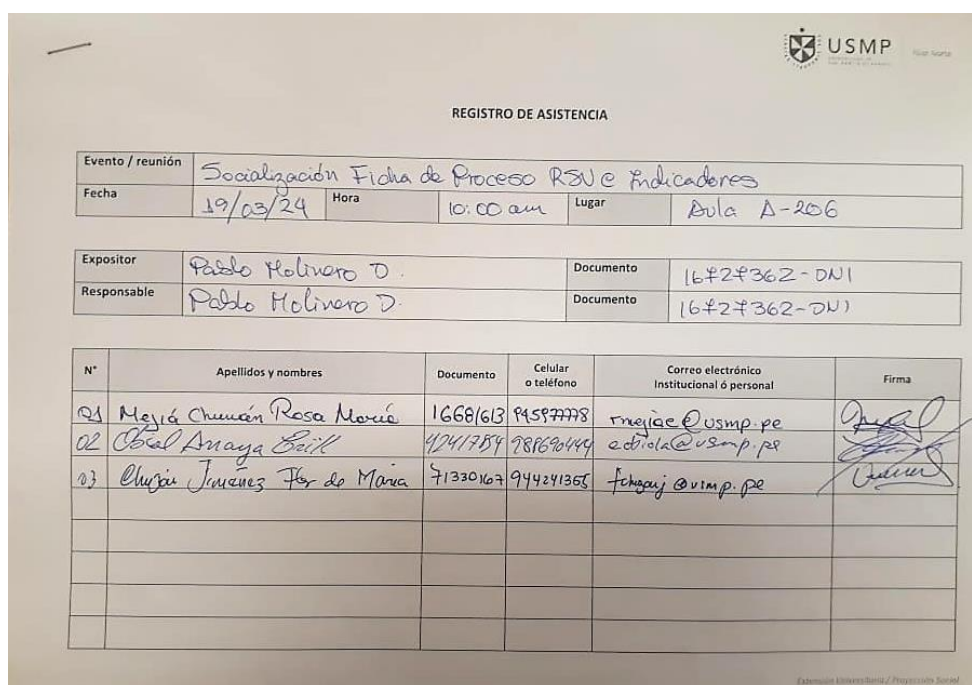 USMP
REGISTRO DE ASISTENCIA
Evento / reunión Socialización Ficha de Proceso RSU e Indicadores
Fecha 19/03/24 Hora 10:00 am Lugar Aula A-206
Expositor Pablo Molinero D. Documento 16727362-DNI
Responsable Pablo Molinero D. Documento 16727362-DNI
N° Apellidos y nombres Documento Celular o teléfono Correo electrónico Institucional ó personal Firma
01 Mejía Chumán Rosa María 16681613 945977778 rmejiac@usmp.pe
02 Anaya 42417154 988690444 @usmp.pe
03 Jimenez Flor de Maria 71330167 944241365 @usmp.pe
Extensión Universitaria / Proyección Social